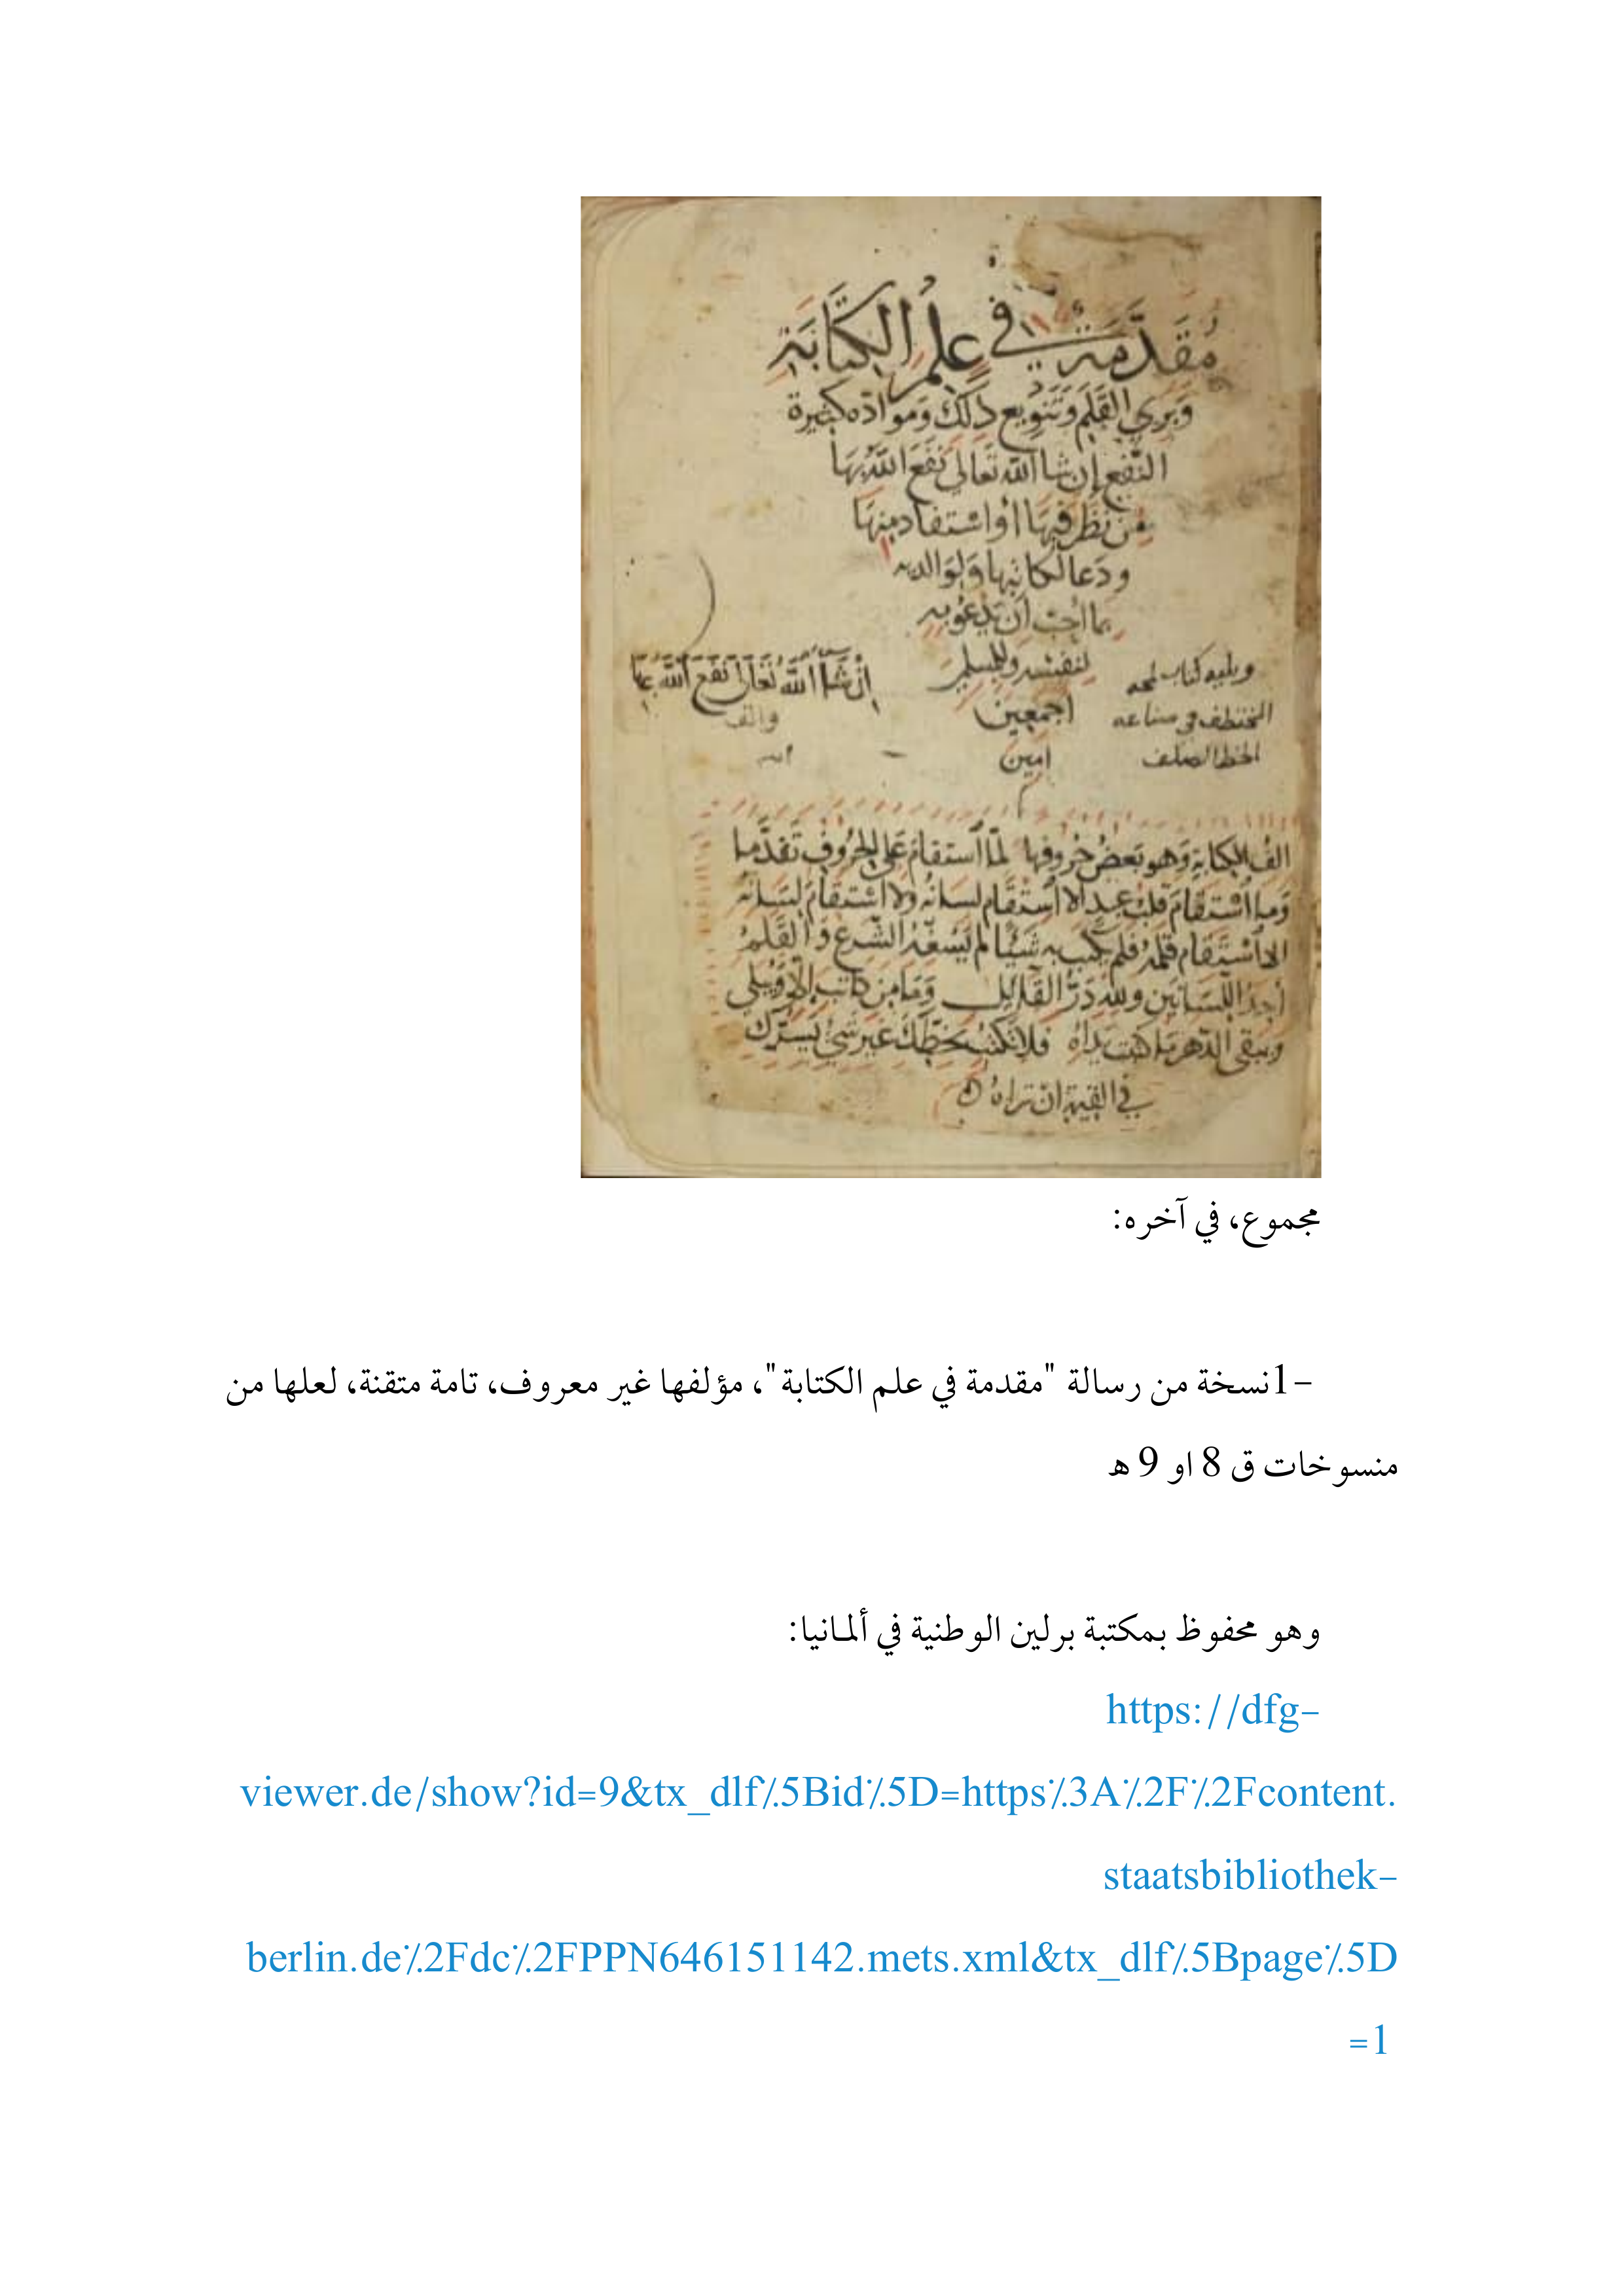 مُقَدَّمَة في عِلْمِ الكِتَابَةِ
وَبَرْيِ القَلَمِ وَتَنْوِيعِ ذَلِكَ وَموادّه كثيرة
النَّفْعِ إن شا الله تَعَالى نَفَعَ اللهُ بِهَا
مَن نَظَر فيهَا أو اسْتفادَ مِنهَا
ودَعا لكاتِبها وَلِوَالديه
بما أحبّ أن يَدْعُو بِهِ
لنفسه وللمسلمين
اجمعين
امين
ويليه كتاب لمحه
المختطف في صناعه
الخط الصلف
إنْ شَاْ اللَّهُ تَعَالَى نَفَعَ اللَّهُ بِهَا
الفُ الكتابةِ وَهو بَعضُ حُرُوفِها لمّا اسْتَقامَ عَلى الحُرُوفِ تَقَدَّما
وَما اسْتَقَامَ قلبُ عبدٍ الا اسْتَقَام لسانُه ولا اسْتَقَامَ لِسَانُه
الا اسْتَقام قلمُه فلم يكتب به شَيْئًا لم يُسَوِّغْهُ الشّرعُ وَالقَلَمُ
أحدُ اللّسَانَين ولله دَرُّ القَائِل وَمَا مِن كاتبٍ إلا وَيبلى
ويبقى الدّهر مَا كتبت يَداهُ فلا تكتُب بخطّكَ غير شيْ يَسُرّك
في القيمة ان تراهُ
مجموع، في آخره:
-1نسخة من رسالة "مقدمة في علم الكتابة"، مؤلفها غير معروف، تامة متقنة، لعلها من
منسوخات ق 8 او 9 ه
وهو محفوظ بمكتبة برلين الوطنية في ألمانيا:
https://dfg-
viewer.de/show?id=9&tx_dlf%5Bid%5D=https%3A%2F%2Fcontent.
staatsbibliothek-
berlin.de%2Fdc%2FPPN646151142.mets.xml&tx_dlf%5Bpage%5D
=1